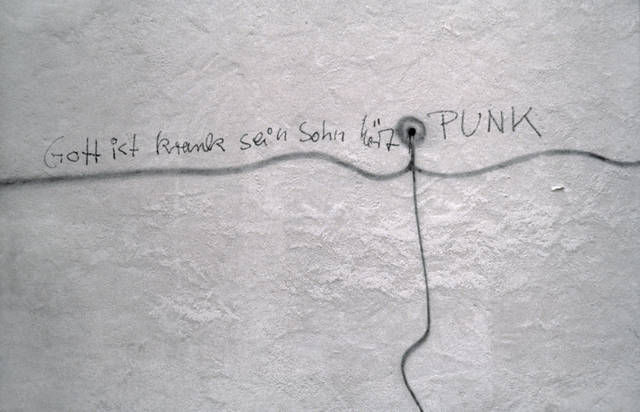 Gott ist krank sein Sohn hört PUNK